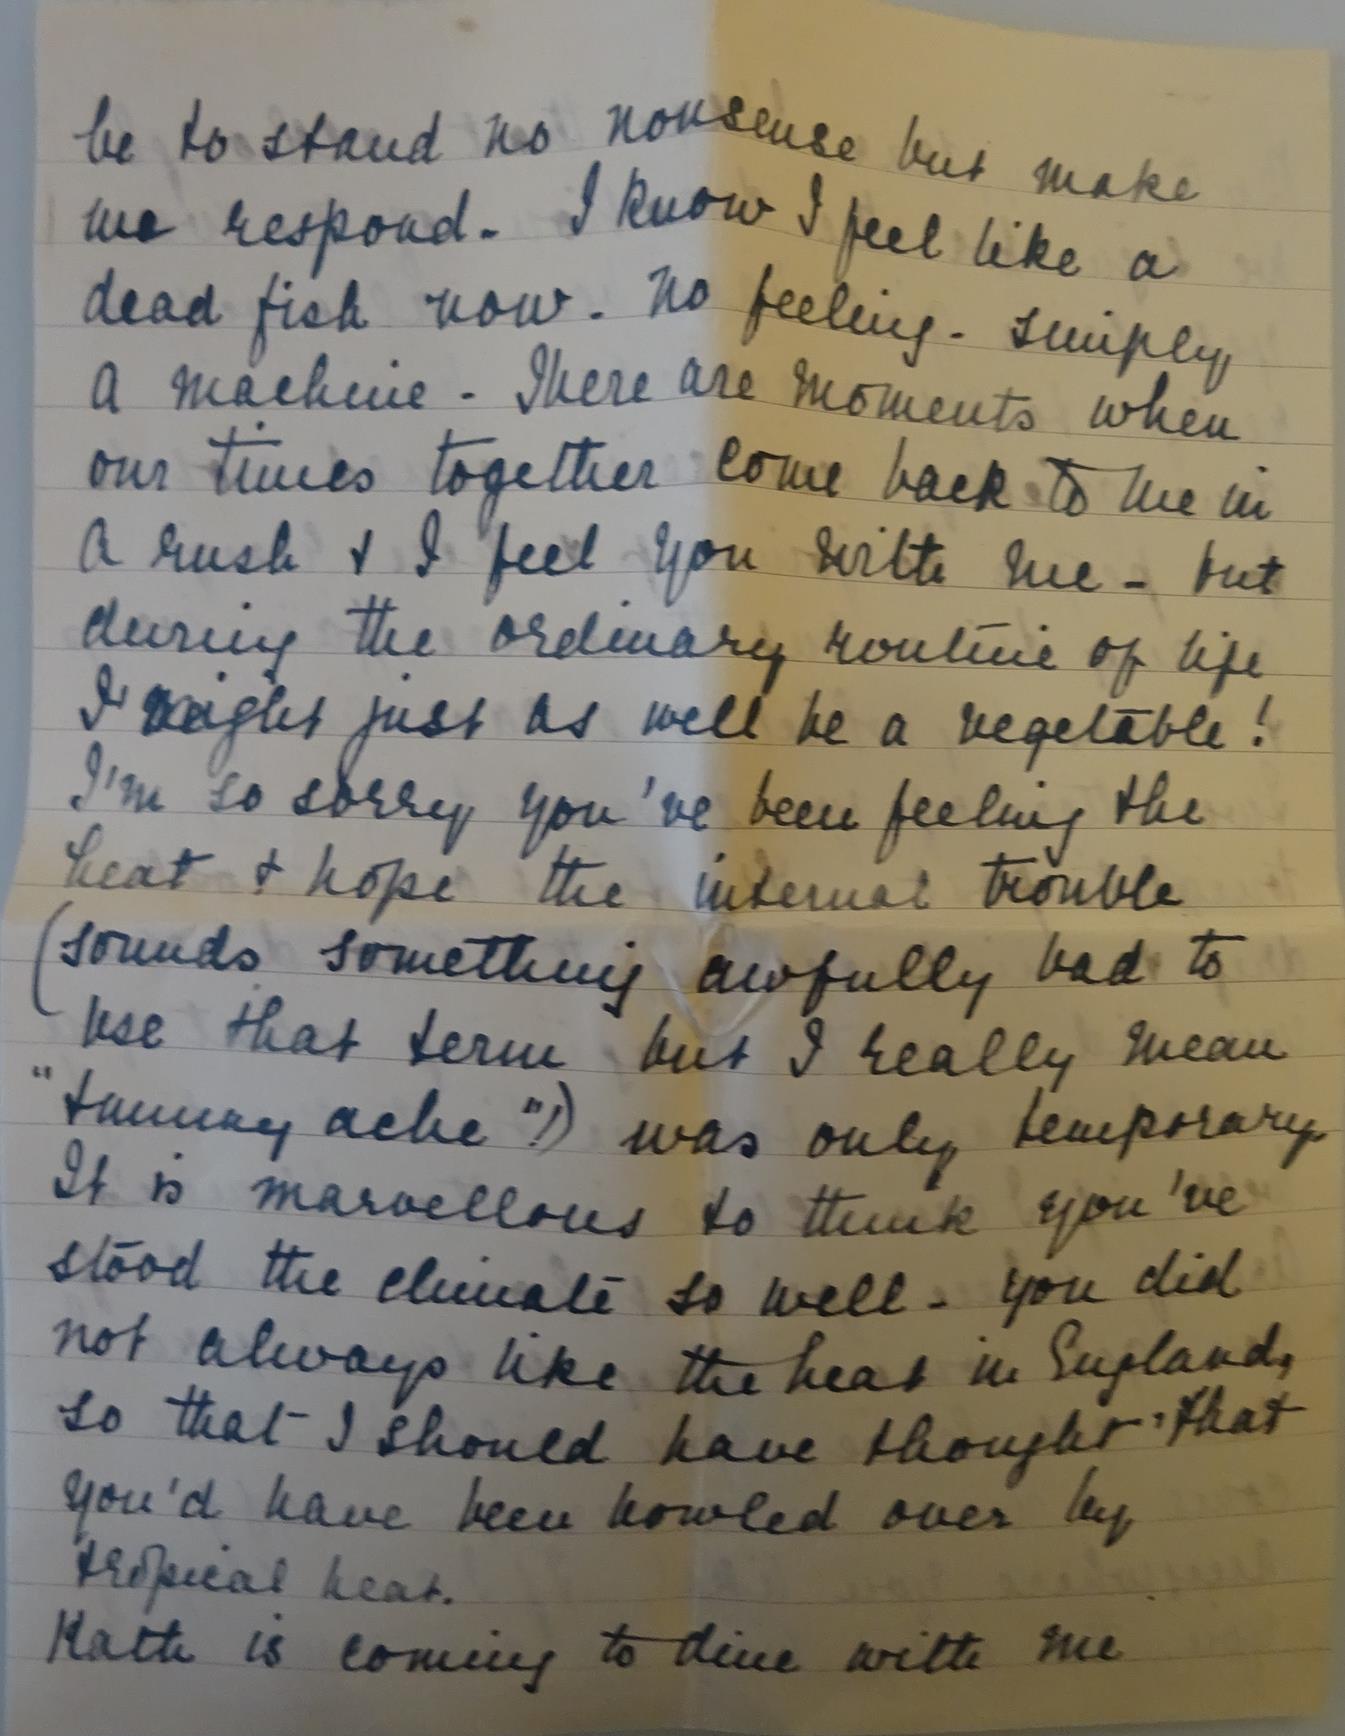 be to stand no nonsense but make
me respond. I know I feel like a
dead fish now. No feeling - simply
a machine - There are moments when
our times together come back to me in
a rush & I feel you with me - but
during the ordinary routine of life
I might just as well be a vegetable!
I'm so sorry you've been feeling the
heat & hope the internal trouble
(sounds something awfully bad to
use that term but I really mean
"tummy ache"!) was only temporary.
It is marvellous to think you've
stood the climate so well - you did
not always like the heat in England,
so that I should have thought that
you'd have been bowled over by
tropical heat.
Kath is coming to dine with me